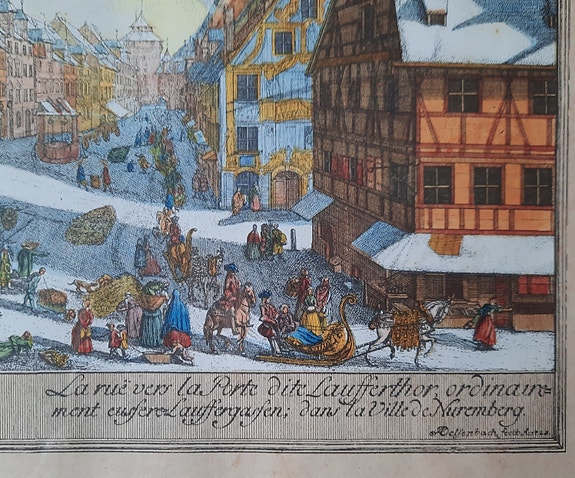 La rue vers la Porte dite Laufferthor, ordinaire=
ment eussere Lauffergassen; dans la Ville de Nuremberg.
Delsenbach